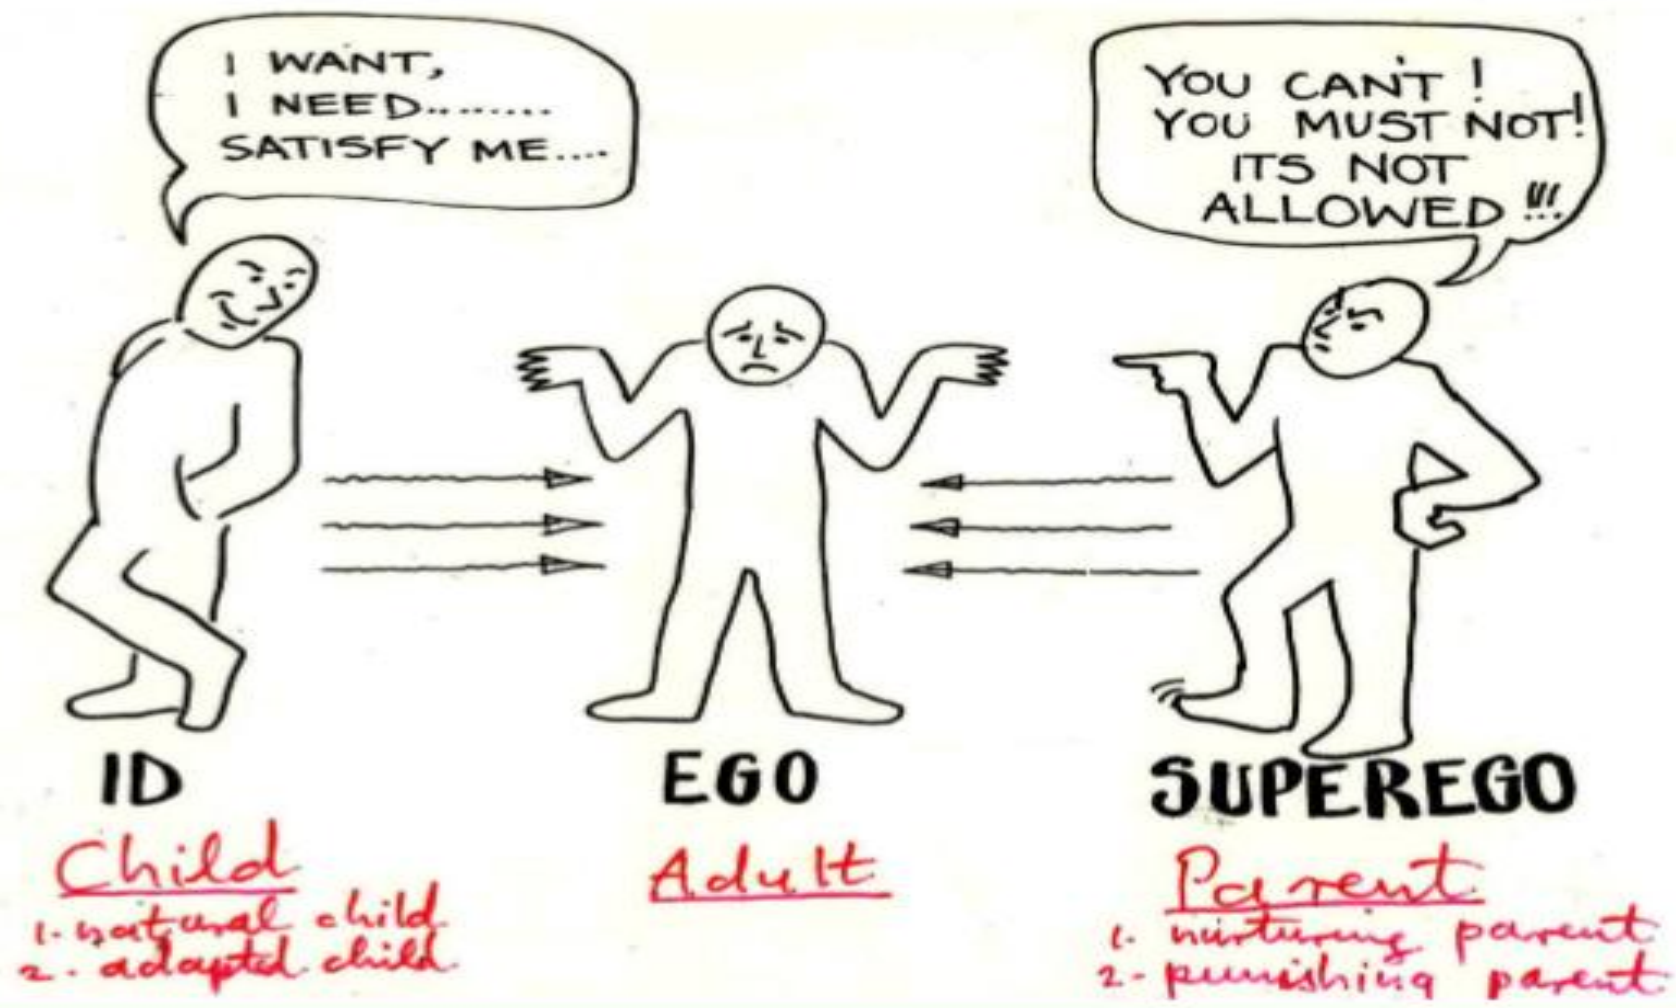 I WANT,
I NEED........
SATISFY ME....
YOU CAN'T !
YOU MUST NOT!
ITS NOT
ALLOWED !!!
ID
EGO
SUPEREGO
Child
1. natural child
2. adapted child
Adult
Parent
1. nurturing parent
2- punishing parent